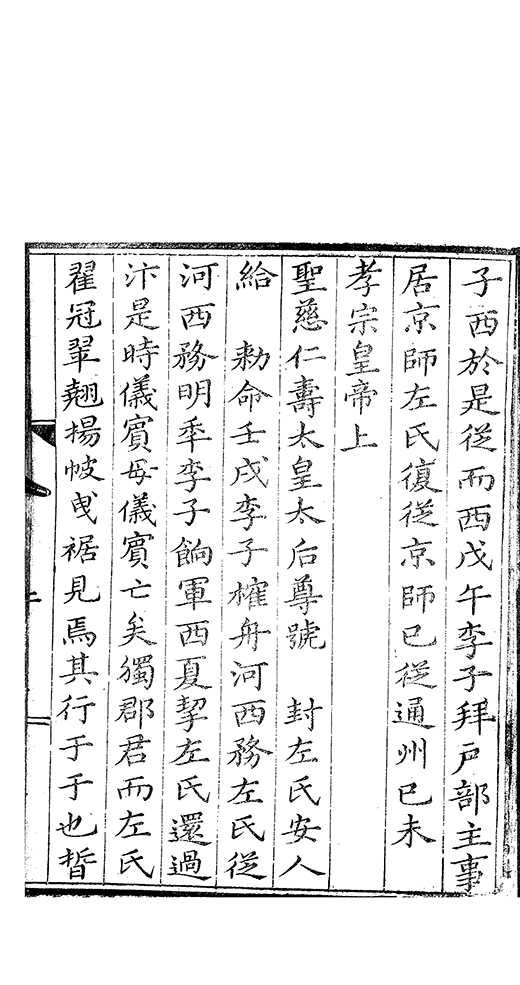 子西於是從而西戊午李子拜戶部主事
居京師左氏復從京師已從通州已未
孝宗皇帝上
聖慈仁壽太皇太后尊號 封左氏安人
給 勅命壬戌李子榷舟河西務左氏從
河西務明秊李子餉軍西夏挈左氏還過
汴是時儀賓母儀賓亡矣獨郡君而左氏
翟冠翠翹揚帔曳裾見焉其行于于也晢